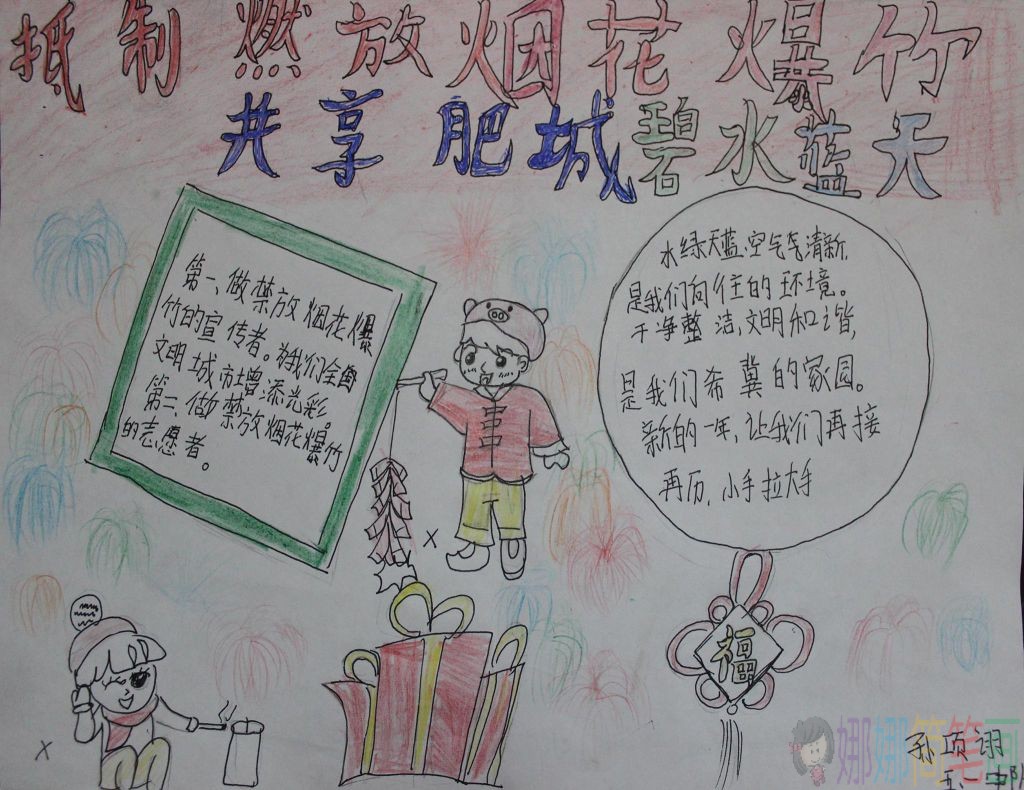 抵制燃放烟花爆竹
共享肥城碧水蓝天
第一、做禁放烟花爆
竹的宣传者。为我们全面
文明城市增添光彩。
第二、做禁放烟花爆竹
的志愿者。
水绿天蓝、空气气清新,
是我们向往的环境。
干净整洁,文明和谐,
是我们希冀的家园。
新的一年,让我们再接
再历,小手拉大手
福
X
X
娜娜简笔画
孙项诩
五一中队